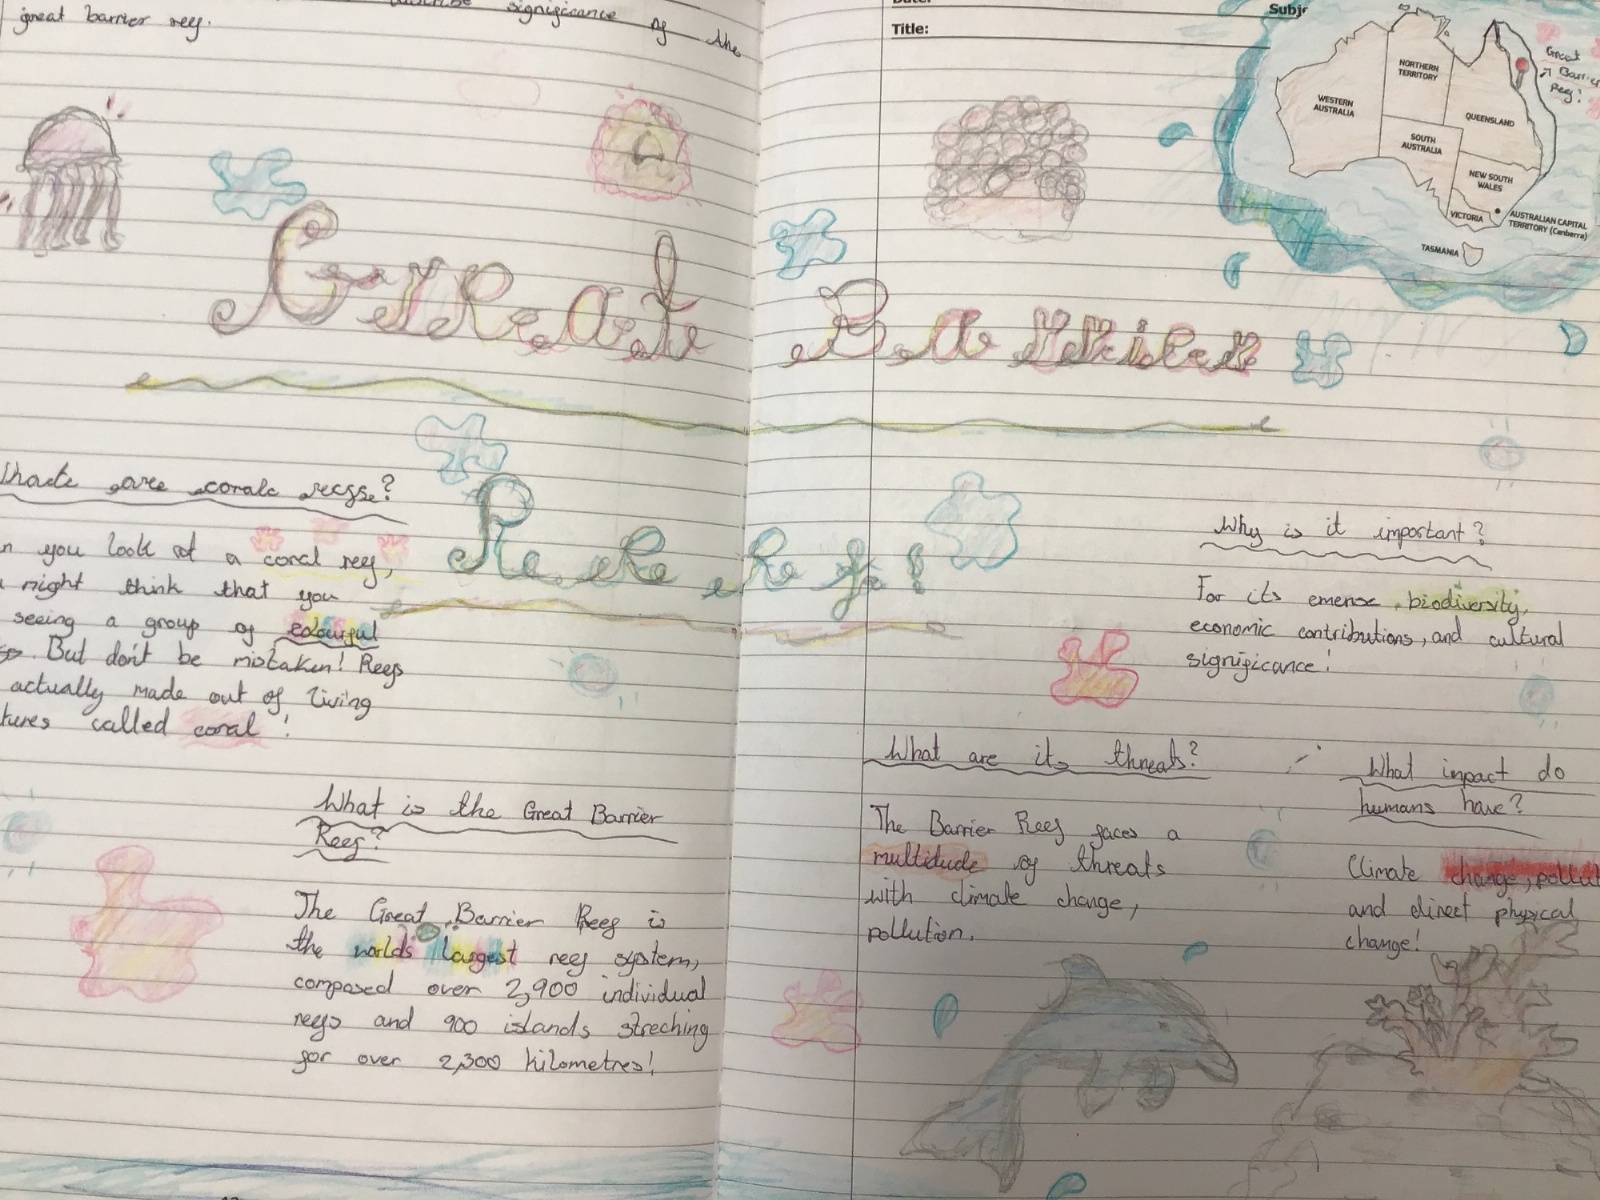 significance of the
great barrier reef.
Title:
NORTHERN
TERRITORY
WESTERN
AUSTRALIA
QUEENSLAND
SOUTH
AUSTRALIA
NEW SOUTH
WALES
VICTORIA
AUSTRALIAN CAPITAL
TERRITORY (Canberra)
TASMANIA
Great
Barrier
Reef!
Great Barrier
Reef!
are corale
you look at a coral reef,
might think that you
seeing a group of colourful
But don't be mistaken! Reefs
actually made out of living
called coral!
What is the Great Barrier
Reef?
The Great Barrier Reef is
the worlds largest reef system,
composed over 2,900 individual
reefs and 900 islands streching
for over 2,300 kilometres!
Why is it important?
For its emense biodiversity,
economic contributions, and cultural
significance!
What are its threats?
The Barrier Reef faces a
multitude of threats
with climate change,
pollution.
What inpact do
humans have?
Climate change,
and direct physical
change!